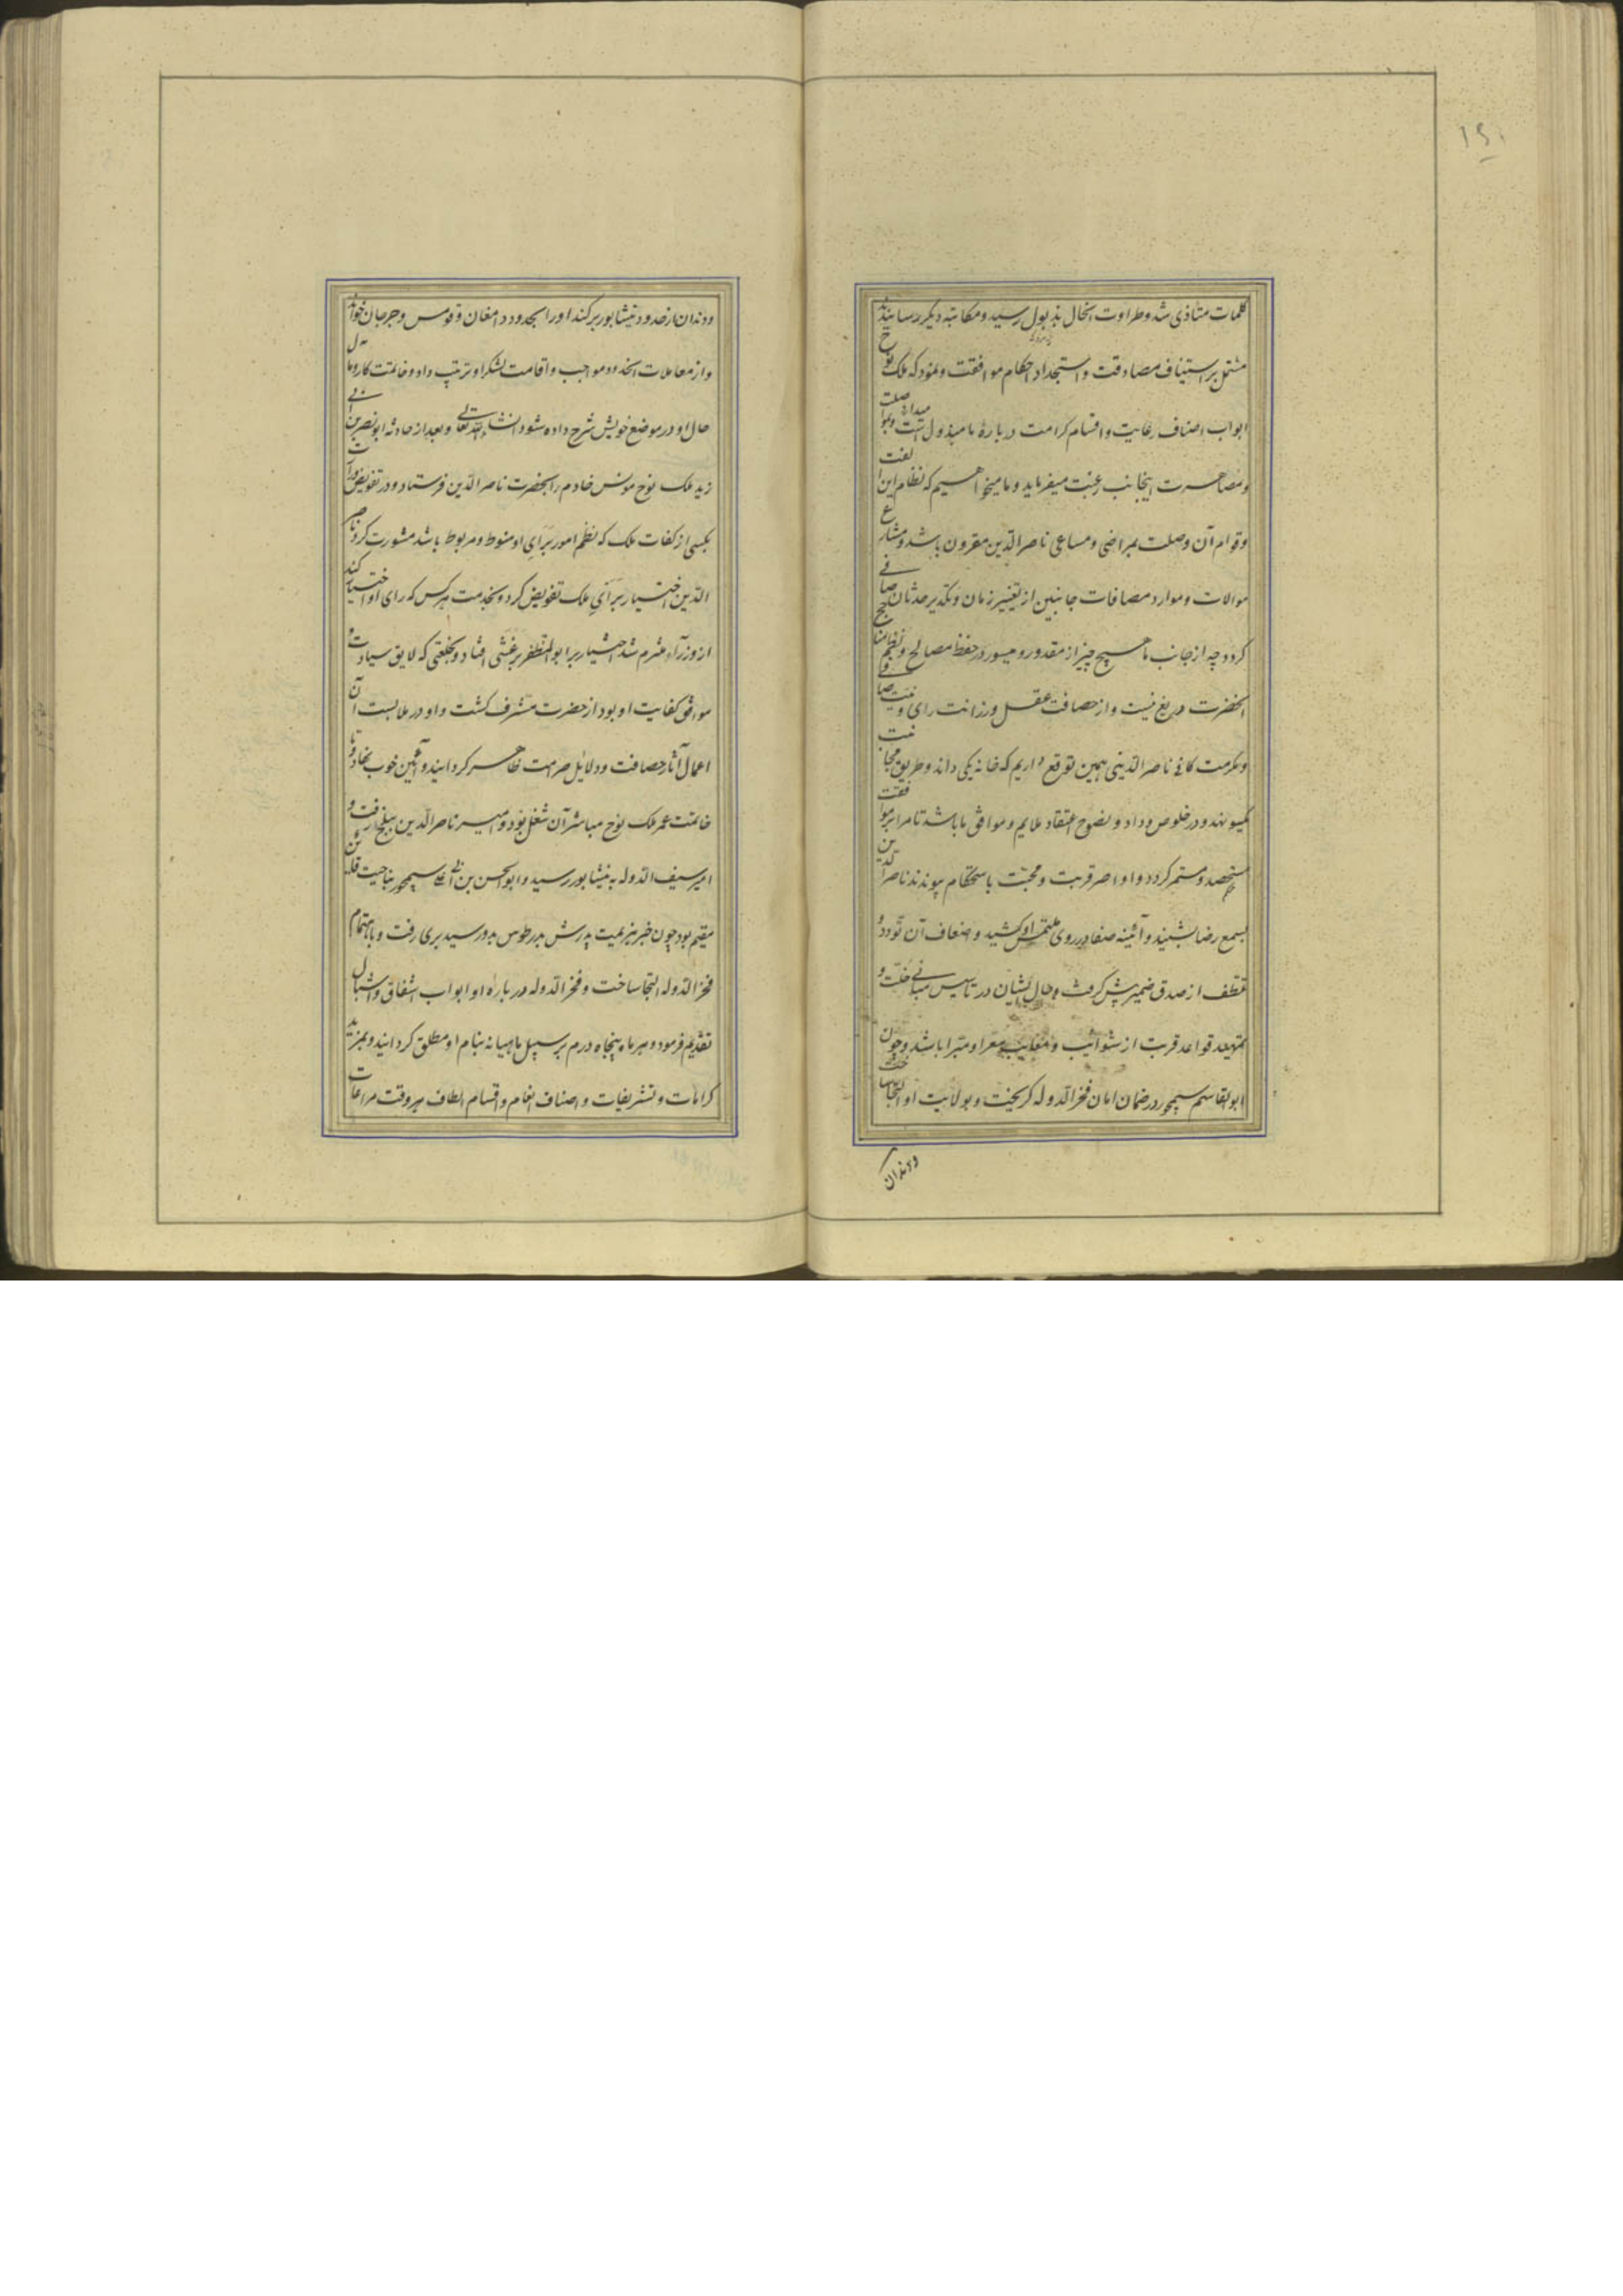 ۱۶۰
کلمات متأذی شد و طراوت آنحال بذبول رسید و مکاتبه دیگر رسانیدند
مشتمل بر استیناف مصادقت و استجداد احکام موافقت و نمود که ملک نوح
ابواب اصناف رعایت و اقسام کرامت درباره ما مبذول داشت و بمواصلت
و مصاهرت اینجانب رغبت میفرماید و ما میخواهیم که نظام این الفت
و قوام آن وصلت بمراضی و مساعی ناصر الدین مقرون باشد و مشارع
موالات و موارد مصافات جانبین از تغییر زمان و تکدیر حدثان صافی
گردد چه از جانب ما هیچ چیز از مقدور و میسور در حفظ مصالح و نظم مناجح
آنحضرت دریغ نیست و از حصافت عقل و رزانت رای و
و مکرمت کافی ناصر الدینی همین توقع داریم که خانه یکی داند و طریق مجانبت
یکسو نهد و در خلوص وداد و نصوح اعتقاد ملایم و موافق ما باشد تا مرایر موافقت
مستحصد و مستمر گردد و اواصر قربت و محبت باستحکام پیوندد ناصر الدین
بسمع رضا بشنید و آئینه صفا در روی ملتمس او کشید و ضعاف آن تودد و
تلطف از صدق ضمیر پیش گرفت و حال ایشان در تأسیس مبانی خلّت و
تمهید قواعد قربت از شوائب و معایب معرا و مبرا باشد و چون
ابو القاسم سیمجور در ضمان امان فخر الدوله گریخت و بولایت او التجا ساخت
و دندان
و دندان از حدود نیشابور برکند او را بحدود دامغان و قومس و جرجان خواند
و از معاملات آنحدود مواجب و اقامت لشکر او ترتیب داد و خاتمت کار و مآل
حال او در موضع خویش شرح داده شود انشاء الله تعالی و بعد از حادثه ابو نصر بن ابی
زید ملک نوح مونس خادم را بحضرت ناصر الدین فرستاد و در تفویض وزارت
بکسی از کفات ملک که نظم امور برای او منوط و مربوط باشد مشورت کرد ناصر
الدین اختیار برای ملک تفویض کرد و بخدمت هر کس که رای او اختیار کند
از وزرآء ملتزم شد اختیار بر ابو المظفر برغشی افتاد و بخلعتی که لایق سیادت و
موافق کفایت او بود از حضرت مشرف گشت و او در ملابست آن
اعمال آثار حصافت و دلایل صرامت ظاهر گردانید و آئین خوب نهاد و تا
خاتمت عمر ملک نوح مباشر آن شغل بود و امیر ناصر الدین ببلخ رفت و
امیر سیف الدوله به نیشابور رسید و ابو الحسن بن ابی علی سیمجور بناحیت قاین
مقیم بود چون خبر هزیمت پدرش بدر طوس بدو رسید بری رفت و باهتمام
فخر الدوله التجا ساخت و فخر الدوله درباره او ابواب اشفاق و اشبال
تقدیم فرمود و هر ماه پنجاه درم بر سبیل ماهیانه بنام او مطلق گردانید و بمزید
کرامات و تشریفات و اصناف انعام و اقسام الطاف هر وقت مراعات